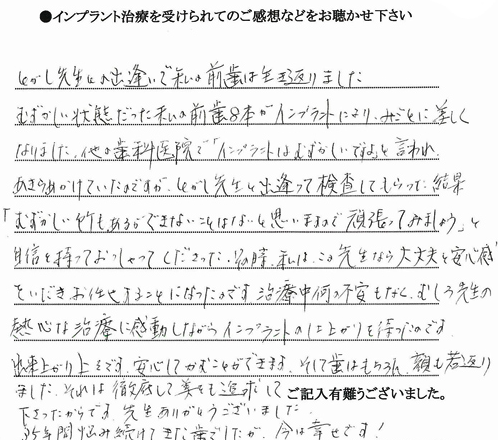 ●インプラント治療を受けられてのご感想などをお聴かせ下さい
ひがし先生との出逢いで私の前歯は生き返りました
むずかしい状態だった私の前歯8本がインプラントにより、みごとに美しく
なりました。他の歯科医院で「インプラントはむずかしいですよ」と言われ
あきらめかけていたのですが、ひがし先生と出逢って検査してもらった結果
「むずかしい所もあるができないことはないと思いますので頑張ってみましょう」と
自信を持っておっしゃってくださった。その時、私は、この先生なら大丈夫と安心感
をいだきお任せすることになったのです 治療中何の不安もなく、むしろ先生の
熱心な治療に感動しながらインプラントの仕上がりを待ったのです。
出来上がり上々です。安心してかむことができます。そして歯はもちろん、顔も若返り
ました。それは徹底して美をも追求して
ご記入有難うございました。
下さったからです。先生ありがとうございました。
35年間悩み続けてきた歯でしたが、今は幸せです!